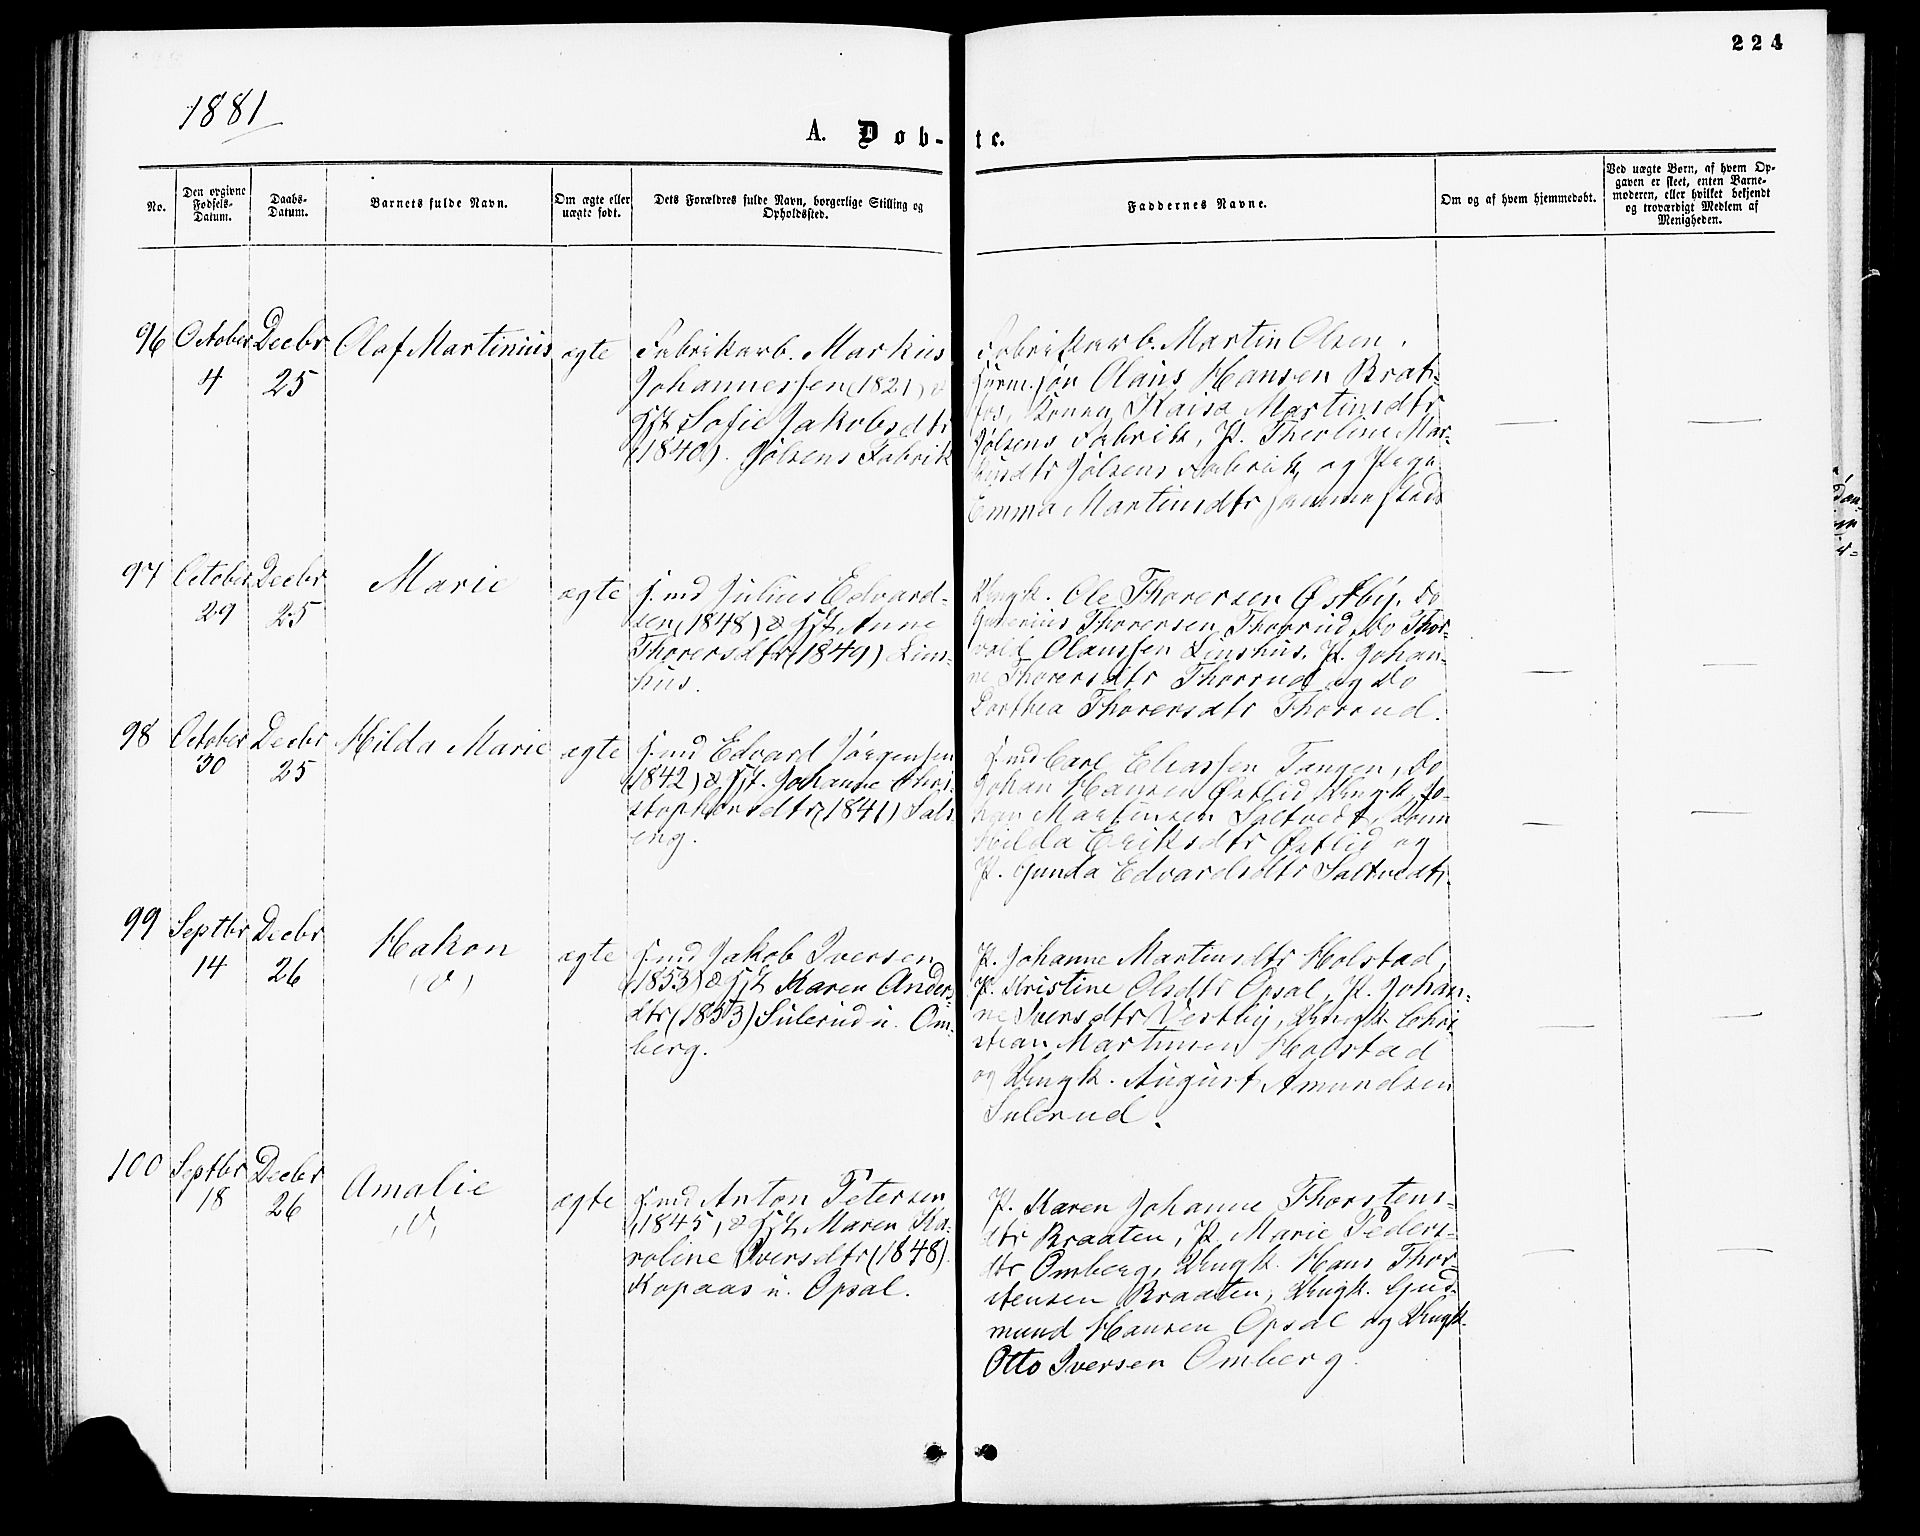 224
1881
A. Døb-
te.
No.
Den opgivne Fødsels-Datum.
Daabs-Datum.
Barnets fulde Navn.
Om ægte eller uægte født.
Dets Forældres fulde Navn, borgerlige Stilling og Opholdssted.
Faddernes Navne.
Om og af hvem hjemmedøbt.
Ved uægte Børn, af hvem Op-
gaven er skeet, enten Barne-
moderen, eller hvilket bekjendt
og troværdigt Medlem af
Menigheden.
96 October 4 Decbr 25 Olaf Martinius ægte
Fabrikarb. Markus
Johannessen (1821) &
Hst Sofie Jakobsdtr
(1840). Jølsens Fabrik
Fabrikarb. Martin Olsen,
Olaus Hansen Brat-
fos, Konen Kaisa Martinsdtr
Jølsens Fabrik, P. Theoline Mar-
kusdtr Jølsens Fabrik og Pige
Emma Martinsdtr sammesteds
97 October 29 Decbr 25 Marie ægte
J.md Julius Edvard-
sen (1848) & Hst Anne
Thorersdtr (1849) Lins-
hus.
Ungk. Ole Thoresen Østby, Do
Gunerius Thorersen Thorrud, Do Thor-
vald Olaussen Linshus, P. Johan-
ne Thorersdtr Thorrud og Do
Dorthea Thorersdtr Thorrud.
98 October 30 Decbr 25 Hilda Marie ægte
J.md Edvard Jørgensen
(1842) & Hst. Johanne Chri-
stophersdtr (1841) Salt-
eng.
J.md Carl Eliassen Tangen, Do
Johan Hansen Østlid, Ungk. Jo-
han Martinsen Saltvedt, Kone
Hilda Eriksdtr Østlid og
P. Gunda Edvardsdtr Saltvedt.
99 Septbr 14 Decbr 26 Hakon (V) ægte
J.md Jakob Iversen
(1853) & Hst Karen Anders-
dtr (1853) Sulerud u. Om-
berg.
P. Johanne Martinsdtr Holstad,
P. Kristine Olsdtr Opsal, P. Johan-
ne Iversdtr Vestby, Ungk. Chri-
stian Martinsen Holstad
og Ungk. August Amundsen
Sulerud.
100 Septbr 18 Decbr 26 Amalie (V) ægte
J.md Anton Petersen
(1845) & Hst Maren Ka-
roline Iversdtr (1848)
Kopaas u. Opsal.
P. Karen Johanne Thorstens-
dtr Braaten, P. Marie Peders-
dtr Omberg, Ungk. Hans Thor-
stensen Braaten, Ungk. Gud-
mund Hansen Opsal og Ungk.
Otto Iversen Omberg.